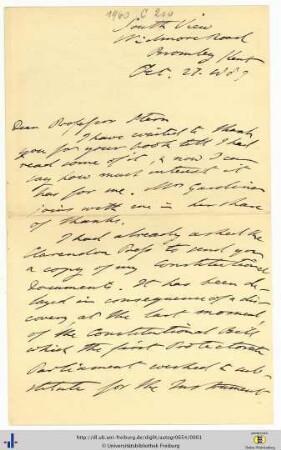 1960 C 200
South View
Widmore Road
Bromley Kent
Oct. 28. 1889
Dear Professor Stern
I have waited to thank
you for your book till I had
read some of it, & now I can
say how much interest it
has for me. Mrs Gardiner
joins with me in her share
of thanks.
I had already asked the
Clarendon Press to send you
a copy of my Constitutional
Documents. It has been de-
layed in consequence of a dis-
covery at the last moment
of the Constitutional Bill,
which the first Protectorate
Parliament wished to sub-
stitute for the Instrument
http://dl.ub.uni-freiburg.de/diglit/autogr0654/0001
Universitätsbibliothek Freiburg